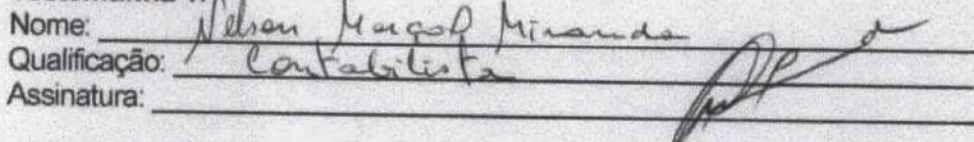 Nome: Nelson Marçal Miranda
Qualificação: Contabilista
Assinatura: